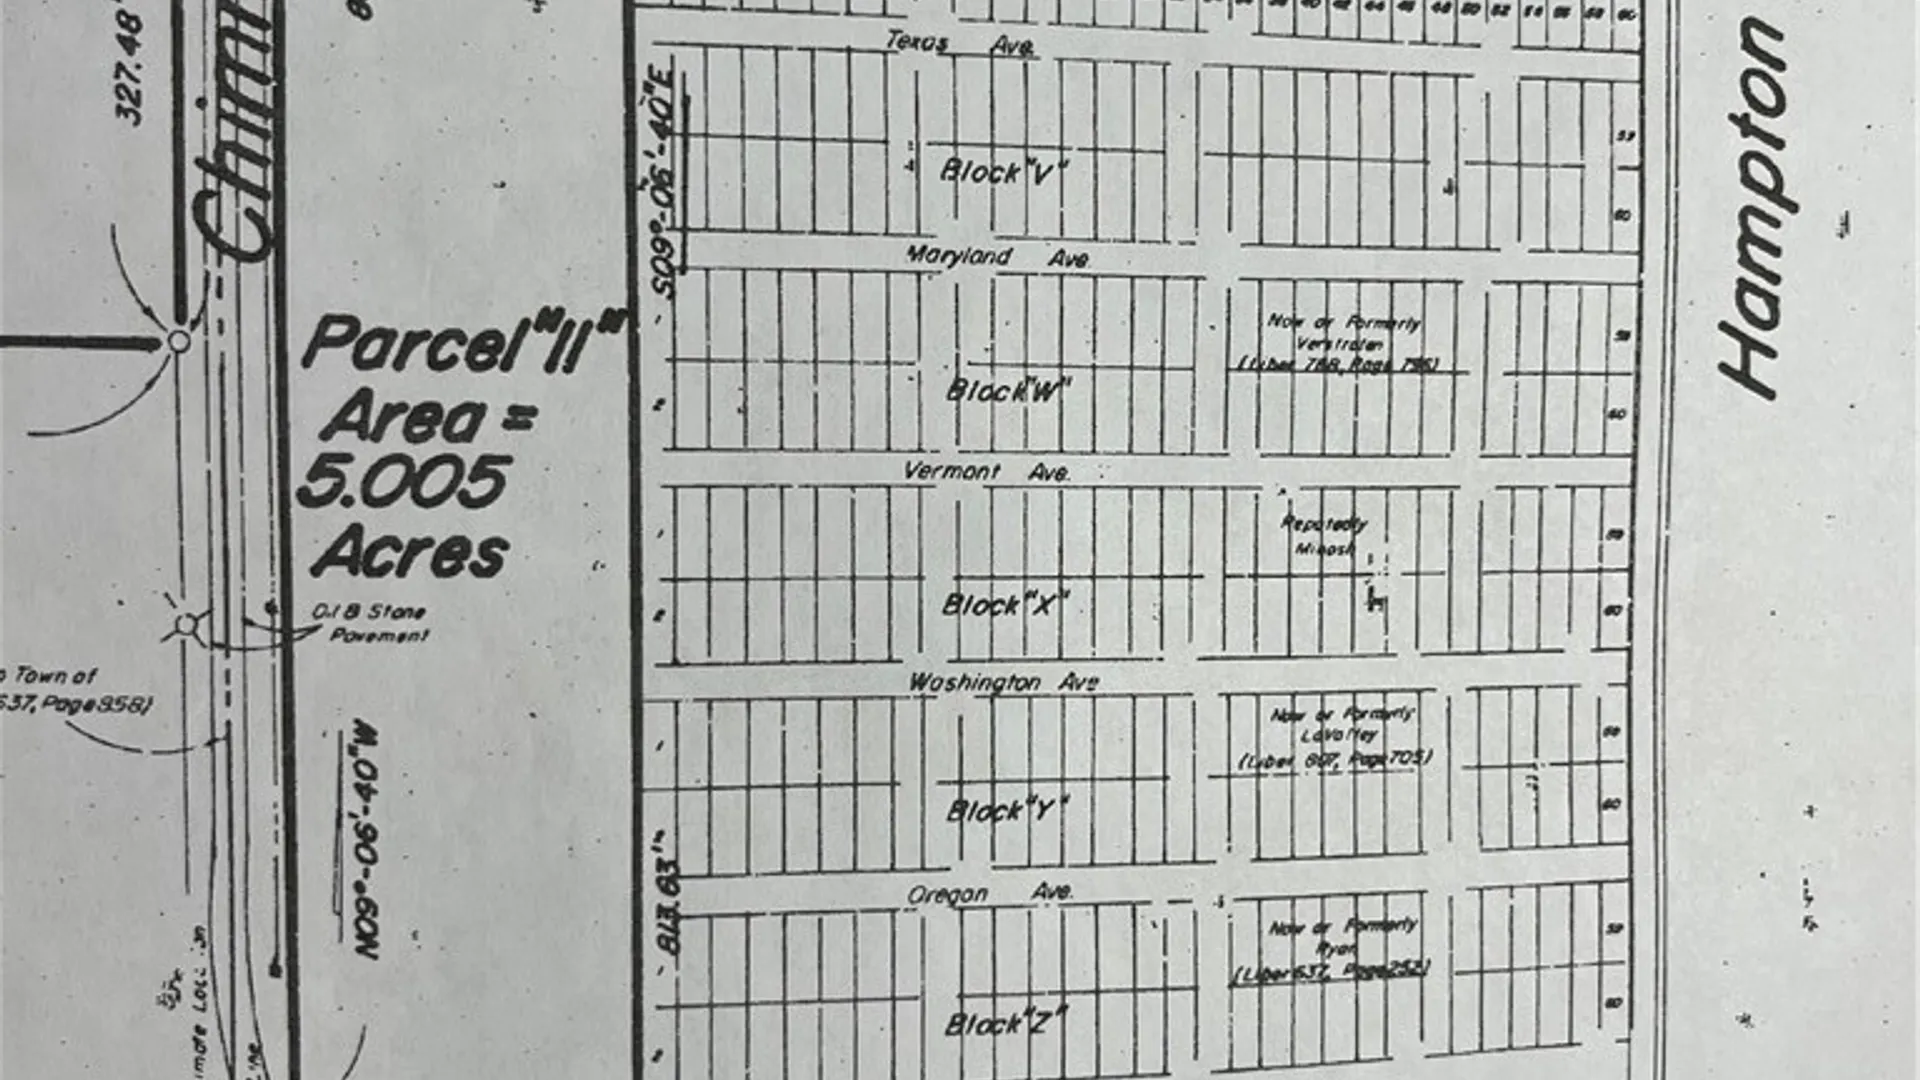 327.48'
Texas Ave.
Hampton
S09°-06'-40"E
Block "V"
59
60
Maryland Ave.
Parcel "II"
Area =
5.005
Acres
Now or Formerly
Verstraten
(Liber 788, Page 796)
1
2
59
60
Block "W"
Vermont Ave.
Reputedly
1
2
59
60
Block "X"
O.I. & Stone
Pavement
Town of
637, Page 858)
Washington Ave
Now or Formerly
LaValley
(Liber 807, Page 705)
1
60
Block "Y"
N09°-06'-40"W
813.63'
Oregon Ave.
Now or Formerly
Ryan
(Liber 637, Page 252)
1
2
59
60
Block "Z"